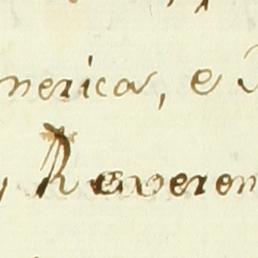 merica, e
y Reveren